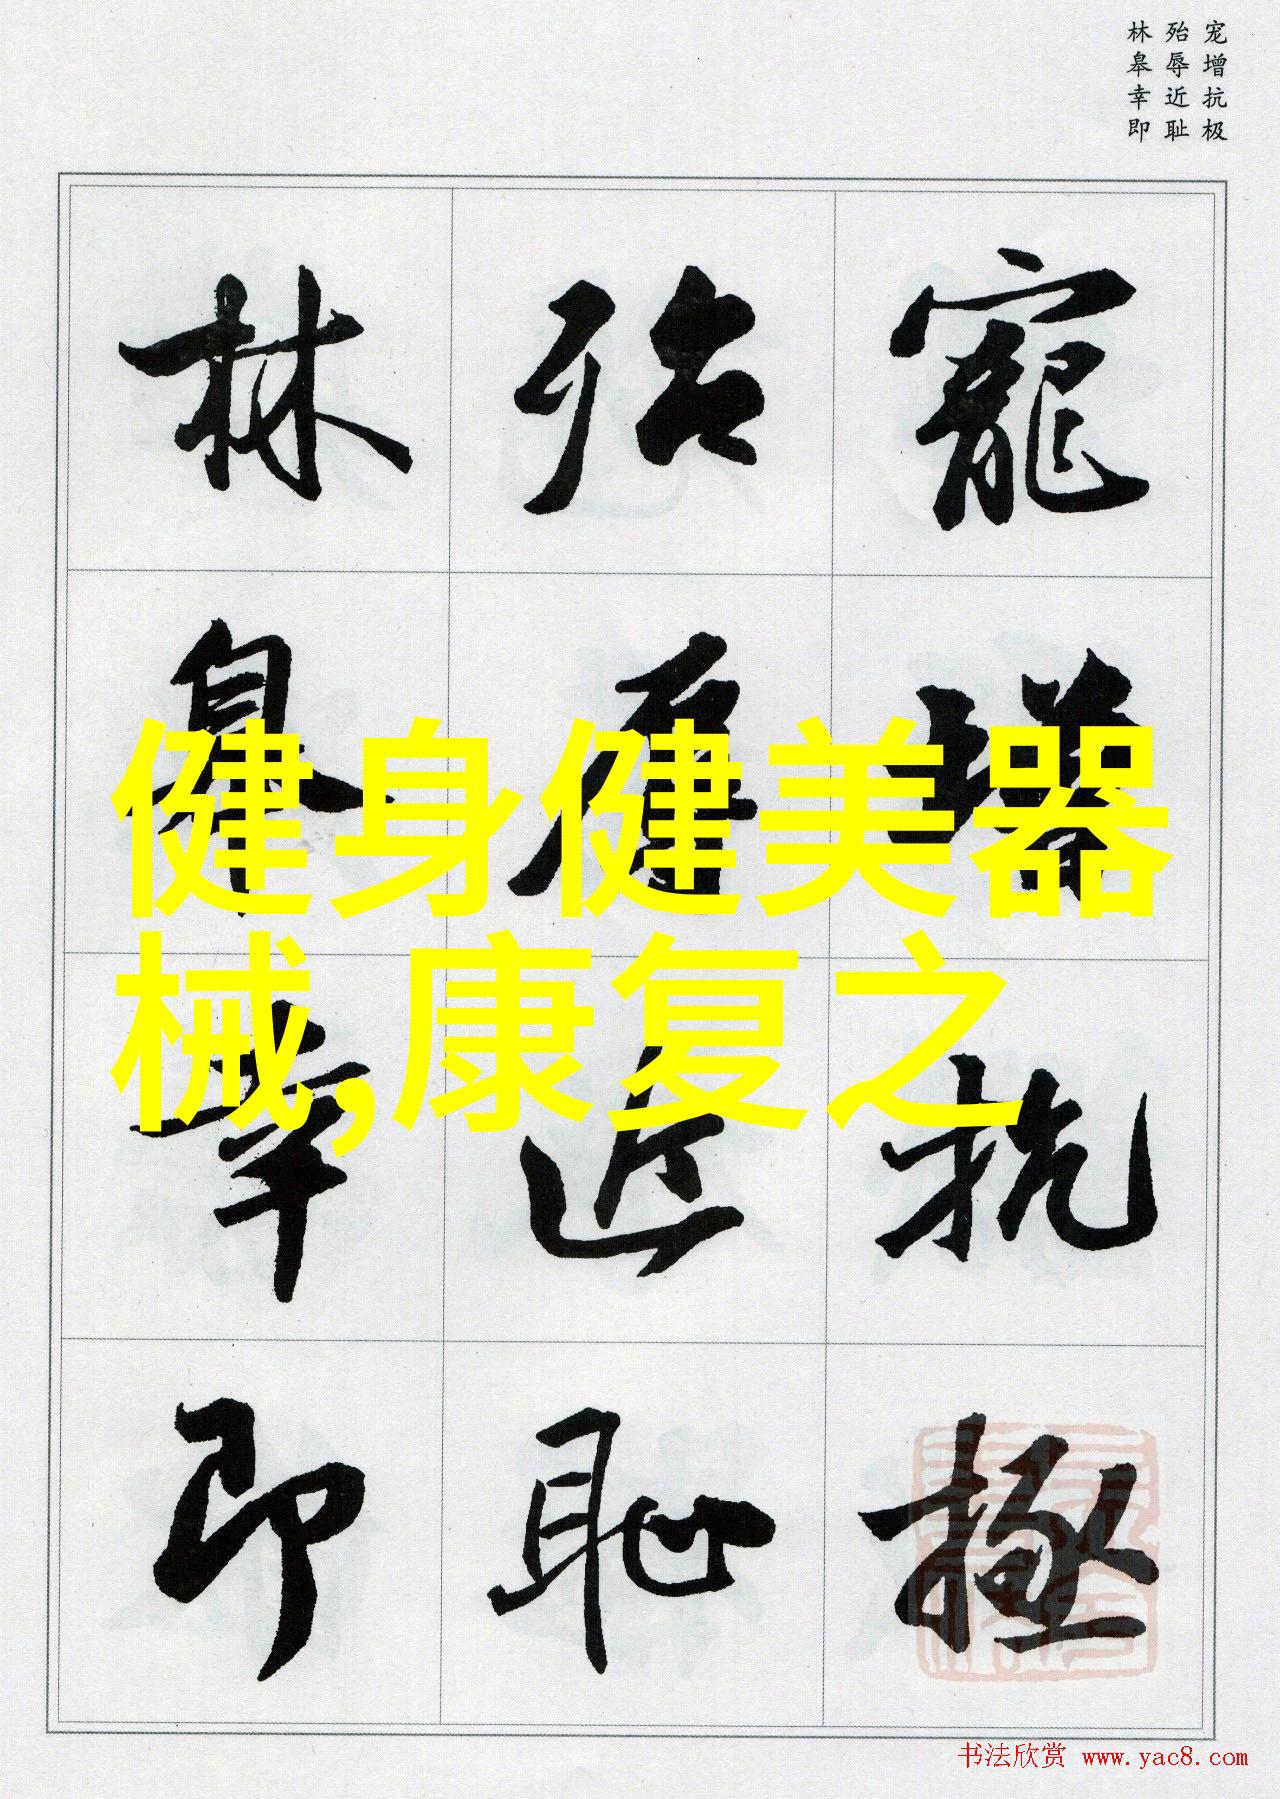 宠增抗极
殆辱近耻
林皋幸即
寵增抗極
殆辱近恥
林皋幸即
健身健美器
械,康复之
书法欣赏 www.yac8.com